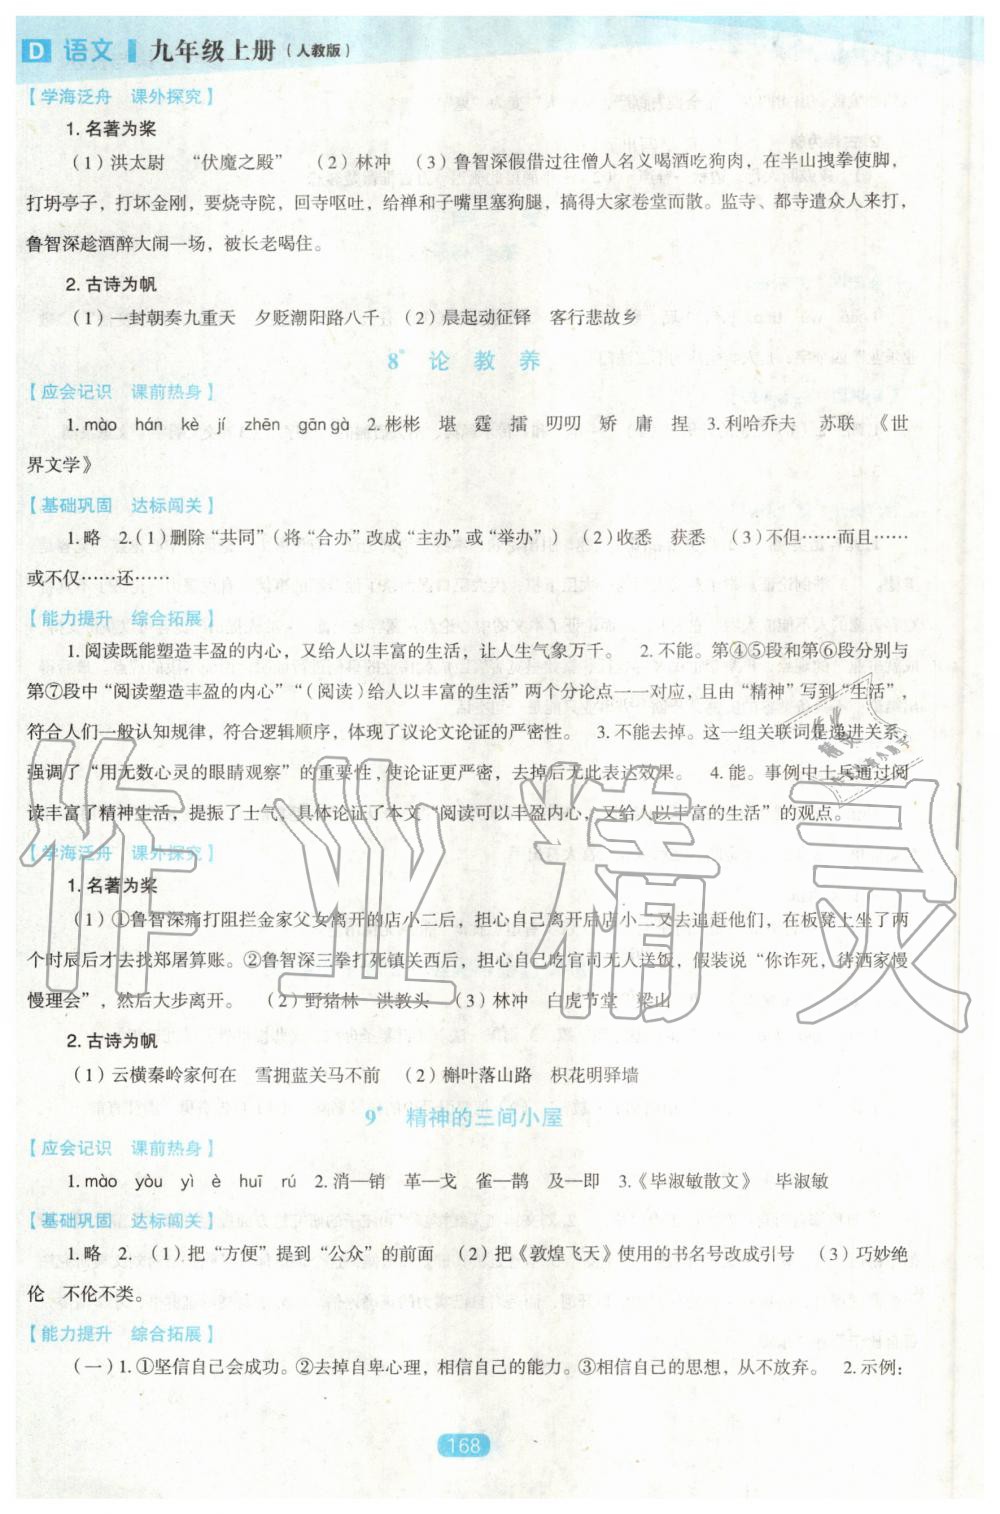 D 语文 九年级上册（人教版）
【学海泛舟 课外探究】
1. 名著为桨
（1）洪太尉 “伏魔之殿” （2）林冲 （3）鲁智深假借过往僧人名义喝酒吃狗肉，在半山拽拳使脚，
打坍亭子，打坏金刚，要烧寺院，回寺呕吐，给禅和子嘴里塞狗腿，搞得大家卷堂而散。监寺、都寺遣众人来打，
鲁智深趁酒醉大闹一场，被长老喝住。
2. 古诗为帆
（1）一封朝奏九重天 夕贬潮阳路八千 （2）晨起动征铎 客行悲故乡
8* 论 教 养
【应会记识 课前热身】
1. mào hán kè jí zhēn gān gà 2. 彬彬 堪 霆 擂 叨叨 矫 庸 捏 3. 利哈乔夫 苏联 《世
界文学》
【基础巩固 达标闯关】
1. 略 2.（1）删除“共同”（将“合办”改成“主办”或“举办”） （2）收悉 获悉 （3）不但……而且……
或不仅……还……
【能力提升 综合拓展】
1. 阅读既能塑造丰盈的内心，又给人以丰富的生活，让人生气象万千。 2. 不能。第④⑤段和第⑥段分别与
第⑦段中“阅读塑造丰盈的内心”“（阅读）给人以丰富的生活”两个分论点一一对应，且由“精神”写到“生活”，
符合人们一般认知规律，符合逻辑顺序，体现了议论文论证的严密性。 3. 不能去掉。这一组关联词是递进关系，
强调了“用无数心灵的眼睛观察”的重要性，使论证更严密，去掉后无此表达效果。 4. 能。事例中士兵通过阅
读丰富了精神生活，提振了士气，具体论证了本文“阅读可以丰盈内心，又给人以丰富的生活”的观点。
【学海泛舟 课外探究】
1. 名著为桨
（1）①鲁智深痛打阻拦金家父女离开的店小二后，担心自己离开后店小二又去追赶他们，在板凳上坐了两
个时辰后才去找郑屠算账。②鲁智深三拳打死镇关西后，担心自己吃官司无人送饭，假装说“你诈死，待洒家慢
慢理会”，然后大步离开。 （2）野猪林 洪教头 （3）林冲 白虎节堂 梁山
2. 古诗为帆
（1）云横秦岭家何在 雪拥蓝关马不前 （2）槲叶落山路 枳花明驿墙
9* 精神的三间小屋
【应会记识 课前热身】
1. mào yòu yì è huī rú 2. 消—销 革—戈 雀—鹊 及—即 3.《毕淑敏散文》 毕淑敏
【基础巩固 达标闯关】
1. 略 2. （1）把“方便”提到“公众”的前面 （2）把《敦煌飞天》使用的书名号改成引号 （3）巧妙绝
伦 不伦不类。
【能力提升 综合拓展】
（一）1. ①坚信自己会成功。②去掉自卑心理，相信自己的能力。③相信自己的思想，从不放弃。 2. 示例：
168
作业精灵